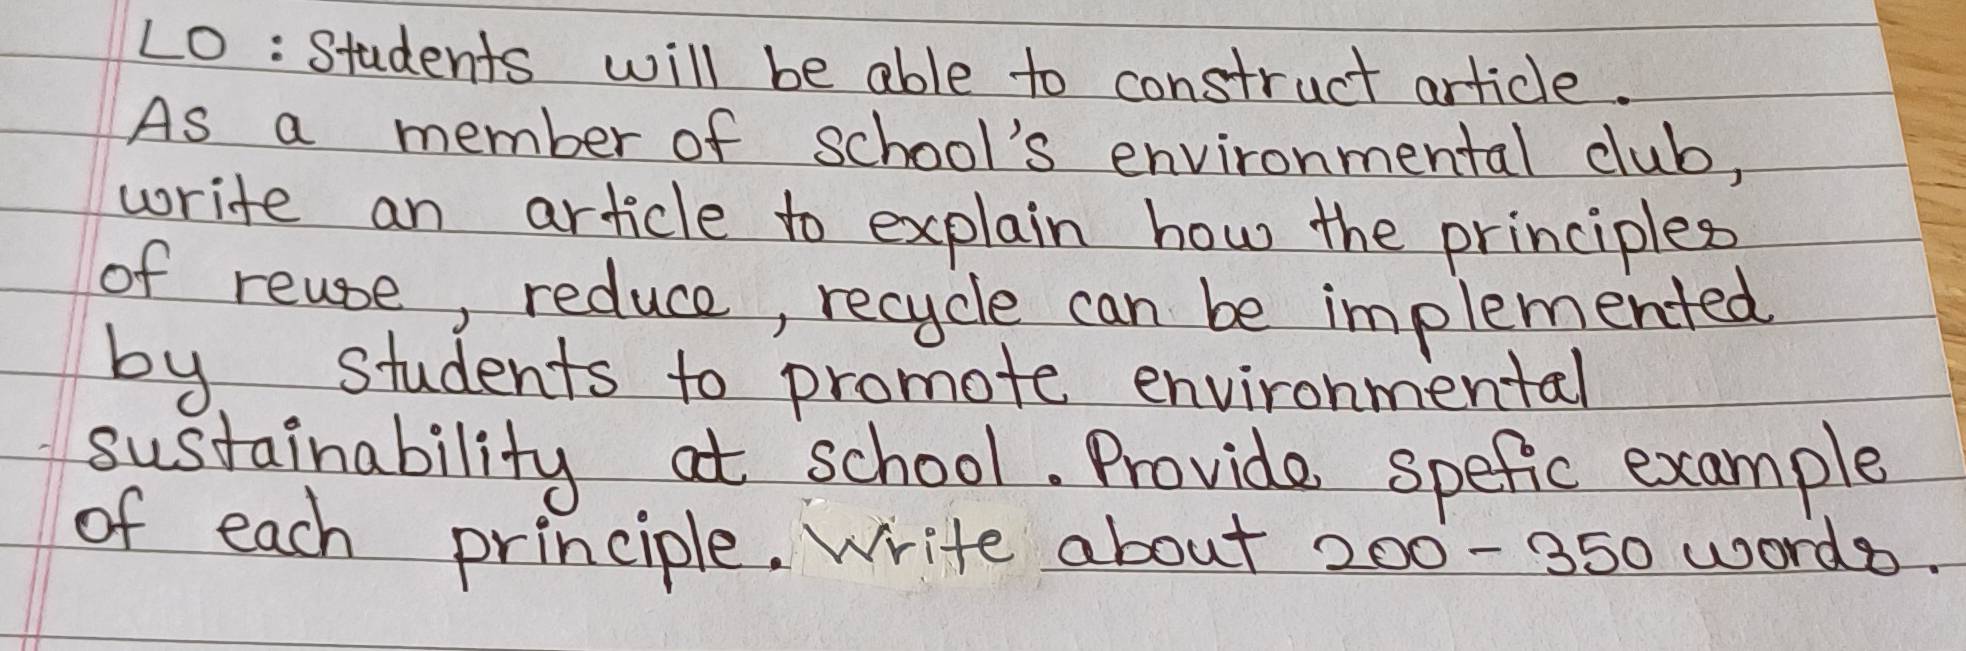 LO : Students will be able to construct article.
As a member of school's environmental club,
write an article to explain how the principles
of reuse, reduce, recycle can be implemented
by students to promote environmental
sustainability at school. Provide spefic example
of each principle. Write about 200 - 350 words.